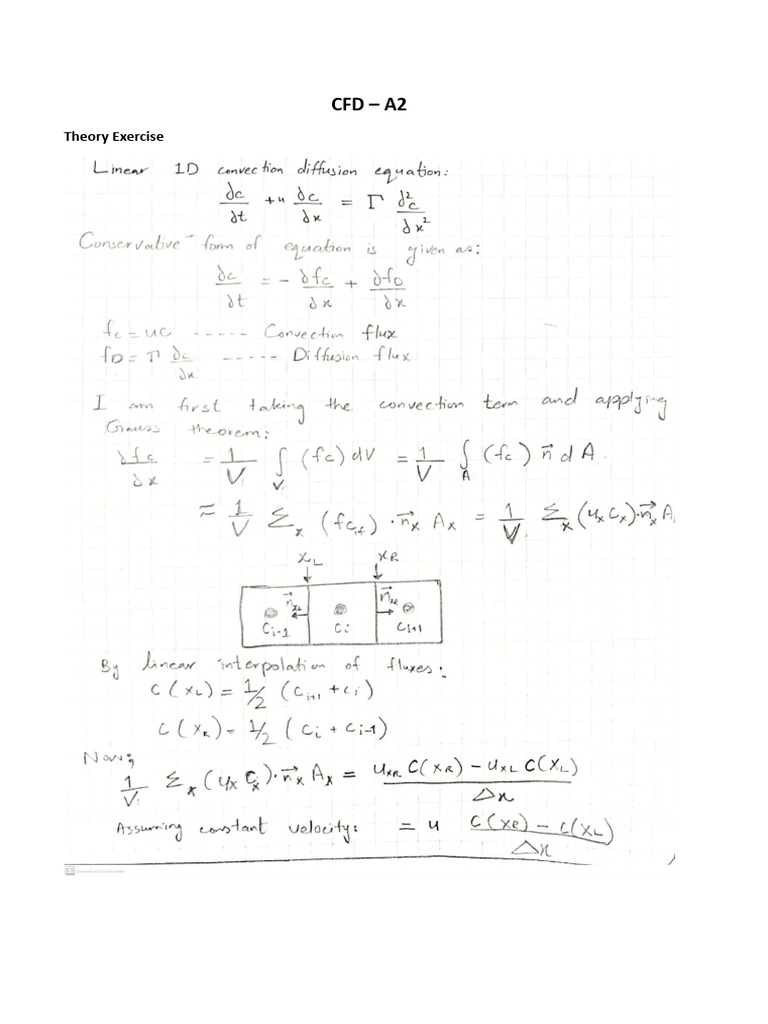 CFD – A2
Theory Exercise
Linear 1D convection diffusion equation:
∂c/∂t + u ∂c/∂x = Γ ∂²c/∂x²
Conservative form of equation is given as:
∂c/∂t = - ∂fc/∂x + ∂fD/∂x
fc = uc ----- Convection flux
fD = Γ ∂c/∂x ----- Diffusion flux
I am first taking the convection term and applying
Gauss theorem:
∂fc/∂x = 1/V ∫V (fc) dV = 1/V ∫A (fc) n⃗ dA
≈ 1/V Σx (fc,f) · n⃗x Ax = 1/V Σx (ux cx) · n⃗x A
xL xR
n⃗xL n⃗xR
Ci-1 Ci Ci+1
By linear interpolation of fluxes:
C(xL) = 1/2 (Ci+1 + Ci)
C(xR) = 1/2 (Ci + Ci-1)
Now,
1/V Σx (ux cx) · n⃗x Ax = (uxR C(xR) - uxL C(xL))/Δx
Assuming constant velocity: = u (C(xR) - C(xL))/Δx
CS